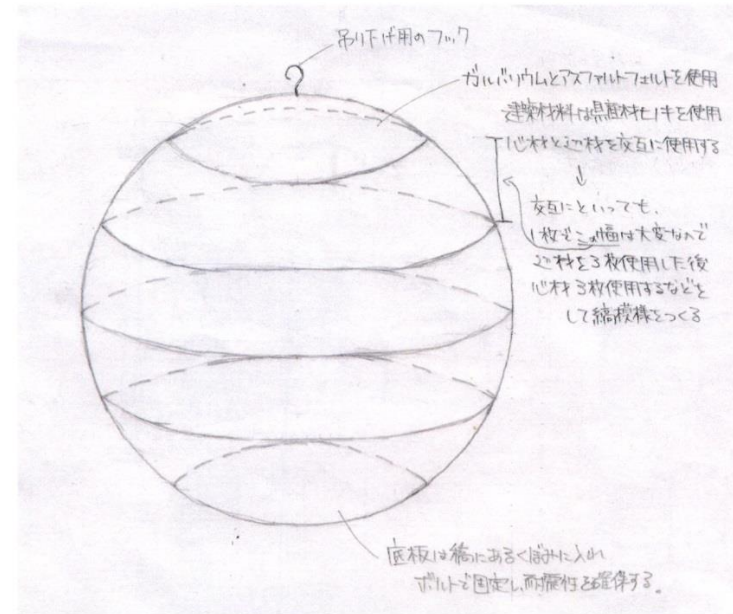 吊り下げ用のフック
ガルバリウムとアスファルトフェルトを使用
建築材料は県産材ヒノキを使用
心材と辺材を交互に使用する
↓
交互にといっても、
1枚でこの幅は大変なので
辺材を3枚使用した後
心材3枚使用するなどを
して縞模様をつくる
底板は橋にあるくぼみに入れ
ボルトで固定し、耐震性を確保する。